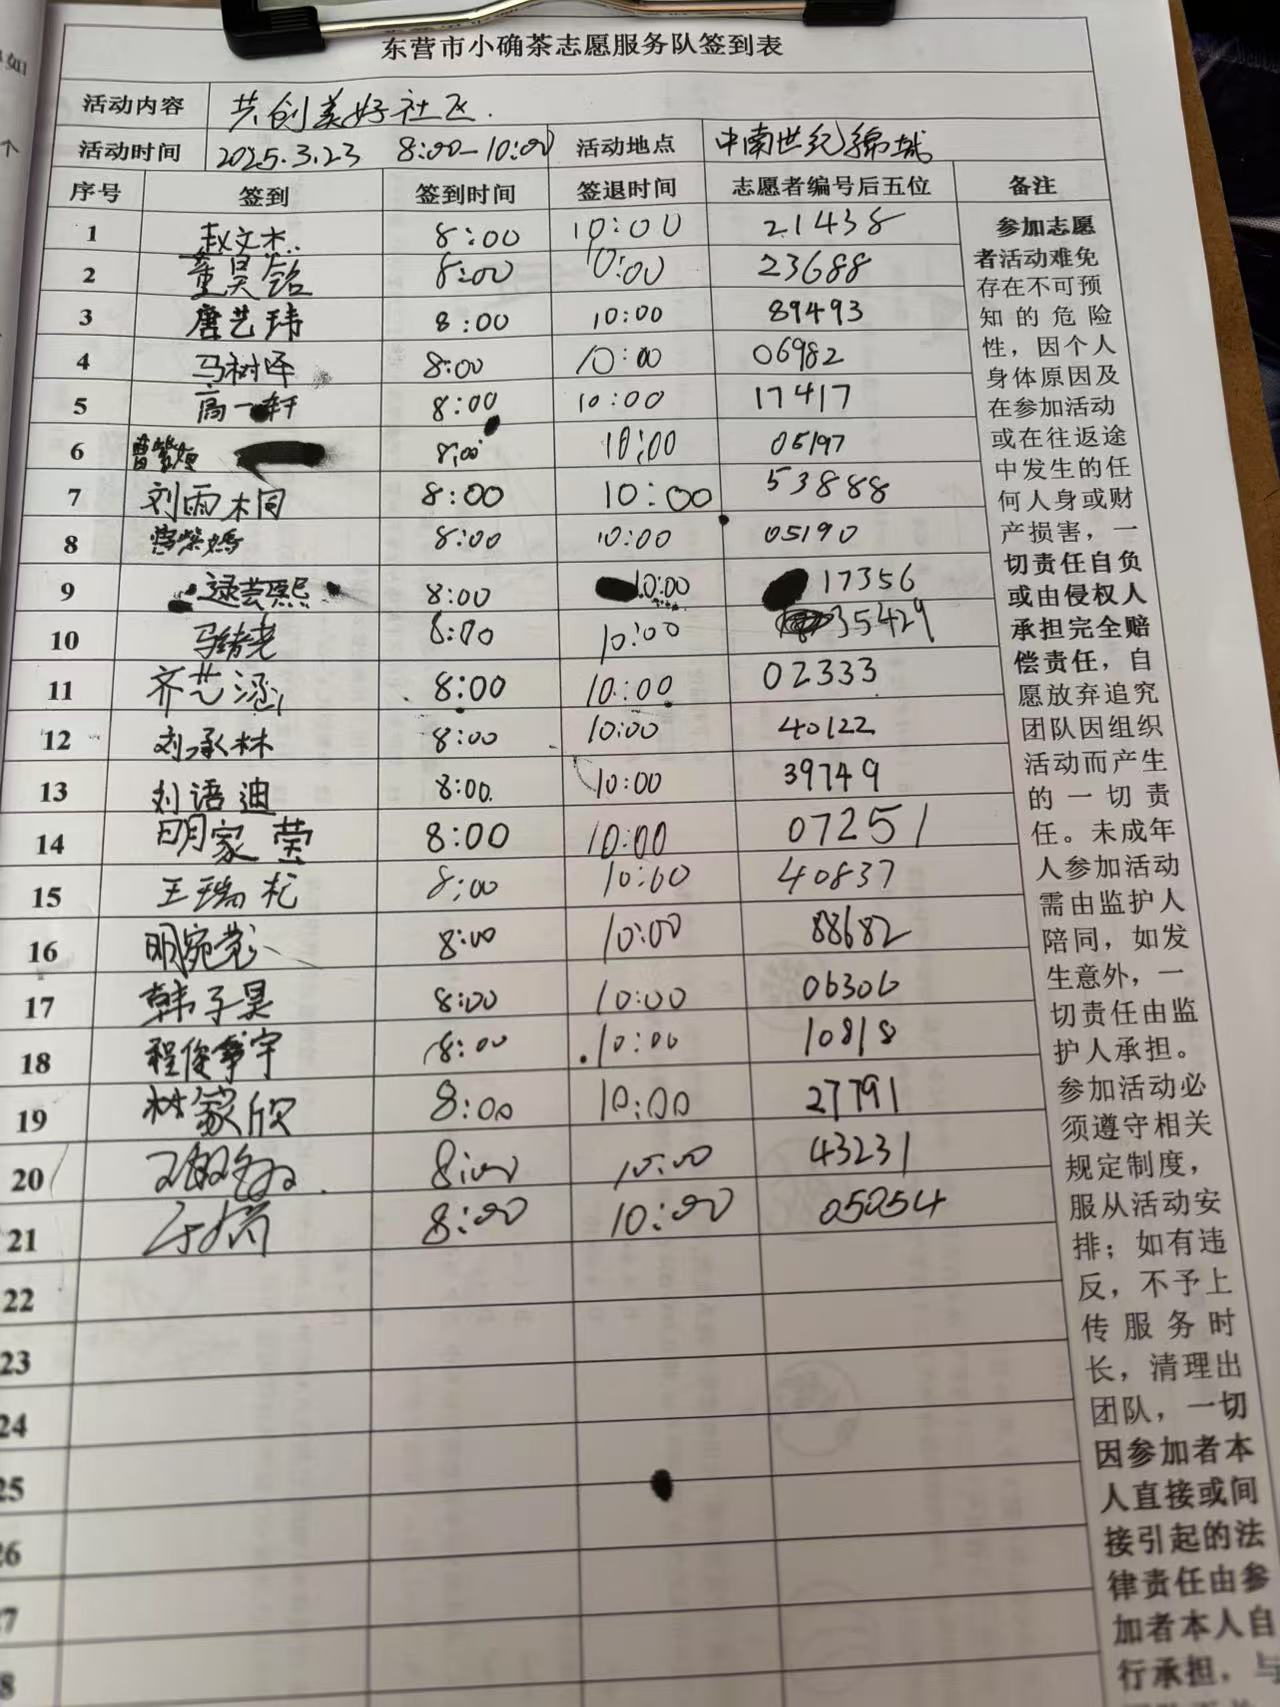 东营市小确茶志愿服务队签到表
活动内容 共创美好社区.
活动时间 2025.3.23 8:00-10:00 活动地点 中南世纪锦城
序号 签到 签到时间 签退时间 志愿者编号后五位 备注
1 赵文杰 8:00 10:00 21438
2 董昊铭 8:00 10:00 23688
3 唐艺玮 8:00 10:00 89493
4 马树泽 8:00 10:00 06982
5 高一轩 8:00 10:00 17417
6 8:00 10:00 05197
7 刘雨桐 8:00 10:00 53888
8 8:00 10:00 05190
9 逯芸熙 8:00 10:00 17356
10 8:00 10:00 35429
11 齐艺涵 8:00 10:00 02333
12 刘承林 8:00 10:00 40122
13 刘语迪 8:00 10:00 39749
14 明家莹 8:00 10:00 07251
15 王瑞 8:00 10:00 40837
16 明宛莹 8:00 10:00 88682
17 韩子昊 8:00 10:00 06306
18 程俊 宇 8:00 10:00 10818
19 林家欣 8:00 10:00 27791
20 8:00 10:00 43231
21 8:00 10:00 05054
22
23
24
25
26
参加志愿
者活动难免
存在不可预
知的危险
性，因个人
身体原因及
在参加活动
或在往返途
中发生的任
何人身或财
产损害，一
切责任自负
或由侵权人
承担完全赔
偿责任，自
愿放弃追究
团队因组织
活动而产生
的一切责
任。未成年
人参加活动
需由监护人
陪同，如发
生意外，一
切责任由监
护人承担。
参加活动必
须遵守相关
规定制度，
服从活动安
排；如有违
反，不予上
传服务时
长，清理出
团队，一切
因参加者本
人直接或间
接引起的法
律责任由参
加者本人自
行承担，与